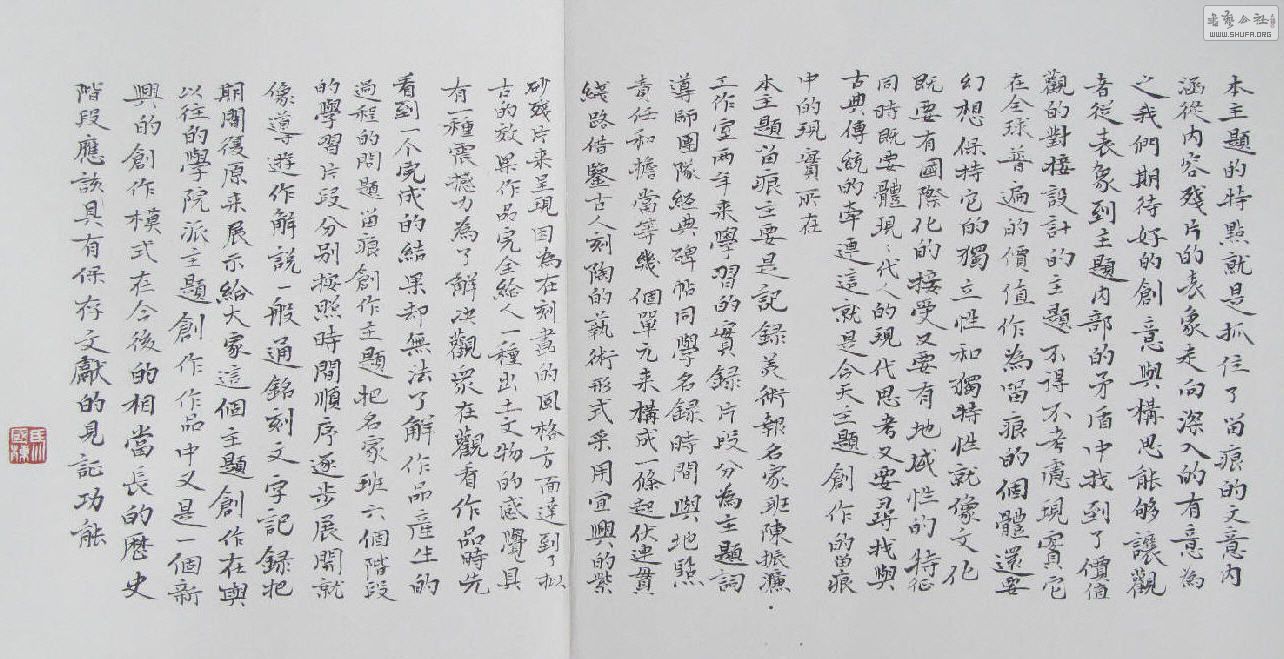 本主題的特點就是抓住了留痕的文意内
涵從内容殘片的表象走向深入的有意為
之我們期待好的創意與構思能够讓觀
者從表象到主題内部的矛盾中找到了價值
觀的對接設計的主題不得不考慮現實它
在全球普遍的價值作為留痕的個體還要
幻想保持它的獨立性和獨特性就像文化
既要有國際化的接受又要有地域性的特征
同時既要體現:代人的現代思考又要尋找與
古典傳統的牽連這就是今天主題創作的留痕
中的現實所在
本主題留痕主要是記録美術報名家班陳振濂
工作室两年来學習的實録片段分為主題詞
導師團隊經典碑帖同學名録時間與地點
責任和擔當等幾個單元来構成一條起伏連貫
綫路借鑒古人刻陶的藝術形式采用宜興的紫
砂殘片来呈現因為在刻畫的風格方面達到了擬
古的效果作品完全給人一種出土文物的感覺具
有一種震撼力為了解决觀眾在觀看作品時先
看到一个完成的結果却無法了解作品産生的
過程的問題留痕創作主題把名家班六個階段
的學習片段分别按照時間順序逐步展開就
像導遊作解說一般通銘刻文字記録把
期間復原来展示給大家這個主題創作在與
以往的學院派主題創作作品中又是一個新
興的創作模式在今後的相當長的歷史
階段應該具有保存文獻的見記功能
書藝公社
WWW.SHUFA.ORG